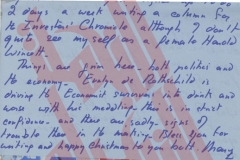 2 days a week writing a column for
the Investors Chronicle although I don't
quite see myself as a female Harold
Wincott.
Things are grim here - both politics and
the economy. Evelyn de Rothschild is
driving the Economist survivors into drink and
worse with his meddling. This is in strict
confidence - and there are sadly signs of
trouble there in the making. Bless you for
writing and happy Christmas to you both. Mary